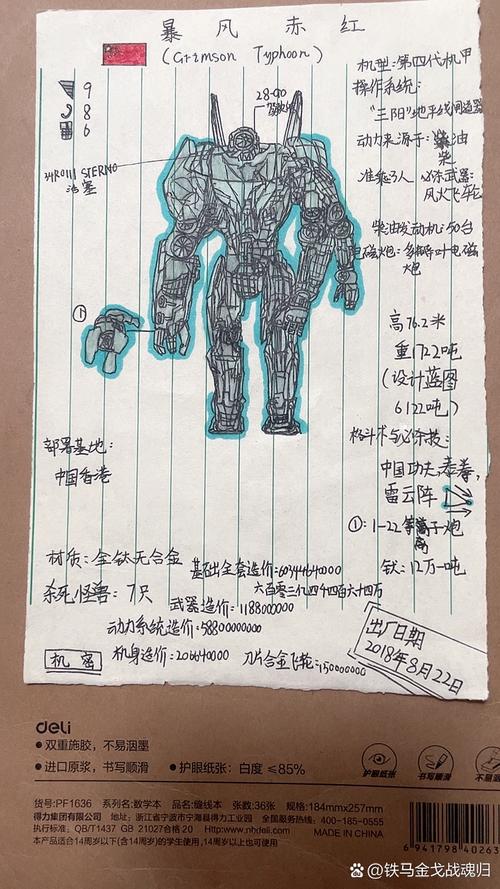 暴风赤红
(Crimson Typhoon)
机型:第四代机甲
操作系统:
"三阳"地平线闸道器
动力来源于:柴油
柴
准乘3人
风火飞车轮
9
8
6
28-90
34R0111 STERNO
柴油发动机:50台
①
高76.2米
重1722吨
(设计蓝图
6122吨)
中国功夫,泰拳,
雷云阵
①:1-22等离子炮
离
钛:12万一吨
部署基地:
中国香港
材质:全钛无合金
基础全套造价:60344640000
六百零三亿四千四百六十四万
杀死怪兽:7只
武器造价:1188000000
动力系统造价:58800000000
机密
机身造价:206640000
刀片合金飞轮:150000000
出厂日期
2018年8月22日
deli
双重施胶,不易洇墨
进口原浆,书写顺滑
护眼纸张:白度≤85%
护眼纸张
书写顺滑
不易洇
货号:PF1636 系列名:数学本 品名:缝线本 张数:36张 规格:184mmx257mm
得力集团有限公司 地址:浙江省宁波市宁海县得力工业园 全国服务热线:400-185-0555
执行标准:QB/T1437 GB 21027合格 Http://www.nbdeli.com MADE IN CHINA
本产品适合14周岁以下(含14周岁)的学生使用,14周岁以上也可使用
6 941798 40263
@铁马金戈战魂归